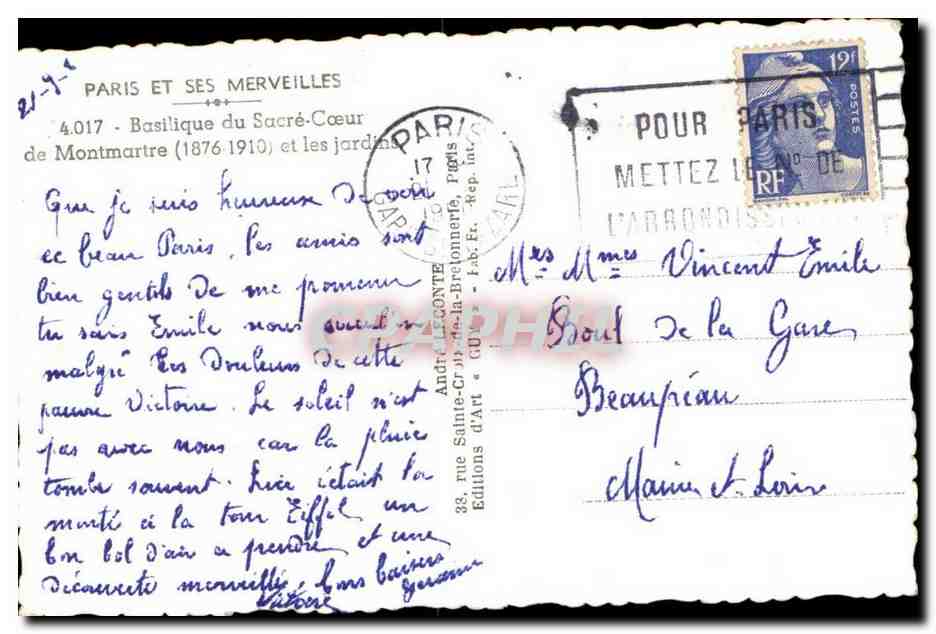 PARIS ET SES MERVEILLES
4.017 - Basilique du Sacré-Cœur
de Montmartre (1876-1910) et les jardins
Que je suis heureuse de voir
ce beau Paris. les amis sont
bien gentils de me promener
tu sais Emile nous
malgré les Douleurs de cette
pauvre Victoire. Le soleil n'est
pas avec nous car la pluie
tombe souvent. hier c'était la
monté à la tour Eiffel, un
bon bol d'air a prendre et une
découverte merveille. bons baisers
Victoire
PARIS
17
GARE ST LAZARE
André LECONTE
38, rue Sainte-Croix-de-la-Bretonnerie, Paris
Editions d'Art « GUY » - Fab. Fr. - Rep. int.
POUR PARIS
METTEZ LE N° DE
L'ARRONDISS
12f
POSTES
RF
Mrs Mmes Vincent Emile
Boul de la Gare
Beaupréau
Maine et Loire
CPAPHIL